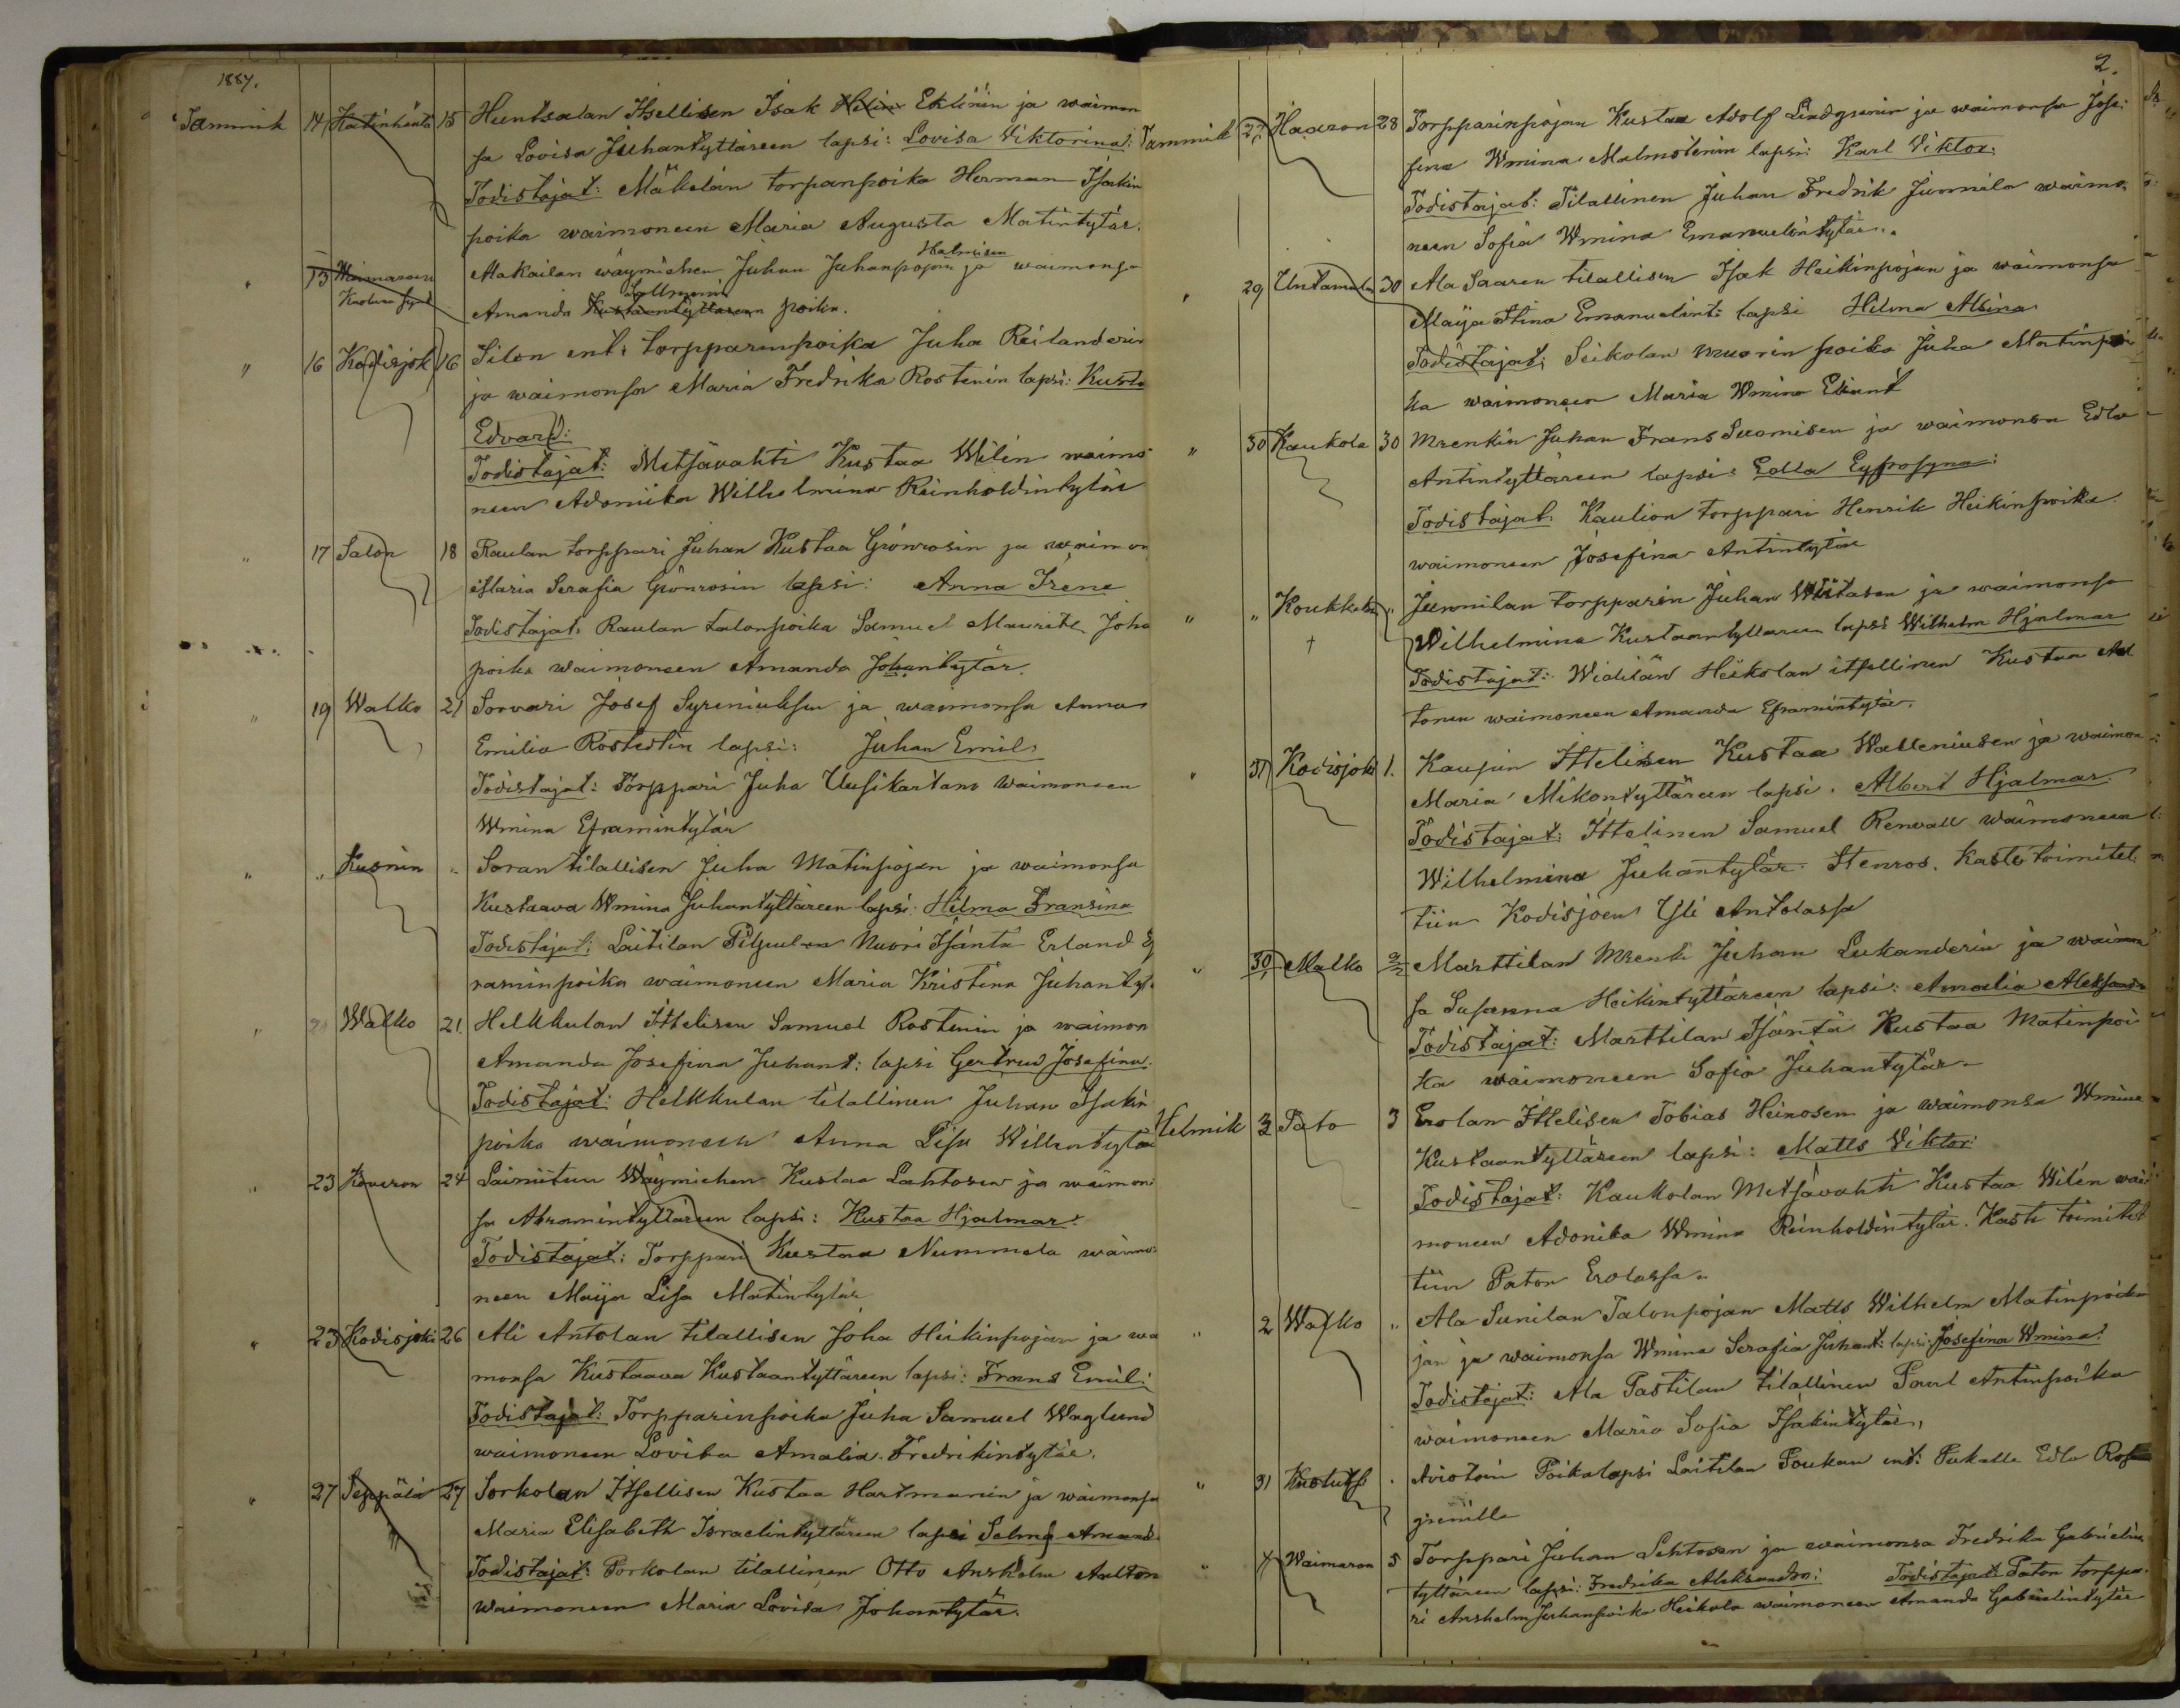 1887.
Tammik 14 Katinhänta 15 Huntsalan Itsellisen Isak Helin Eklünin ja waimon
sa Lovisa Juhantyttären lapsi: Lovisa Viktorina:
Todistajat: Mäkelän torpanpoika Herman Isakin
poika waimoneen Maria Augusta Matintytär.
" 13 Waimaron Makailan wäymiehen Juhan Juhanpojan Halmisen ja waimonsa
Amanda Kustaantyttären poika.
" 16 Kodisjok 16 Silon ent. torpparinpoika Juha Reilanderin
ja waimonsa Maria Fredrika Rostenin lapsi: Kusta
Edvard:
Todistajat: Metsävahti Kustaa Wilén waimo
neen Adamiika Wilhelmina Reinholdintytär
" 17 Salon 18 Raulan torppari Juhan Kustaa Grönrosin ja waimon
Maria Serafia Grönrosin lapsi: Anna Irene
Todistajat, Raulan talonpoika Samuel Maurits Joha
poika waimoneen Amanda Johantytär.
" 19 Walko 21 Sorvari Josef Syreniuksen ja waimonsa Anna
Emilia Rostedtin lapsi: Juhan Emil
Todistajat: Torppari Juha Uusikartano waimoneen
Wmina Eframintytär
" " Kusnin " Soran tilallisen Juha Matinpojan ja waimonsa
Kustaava Wmina Juhantyttären lapsi: Hilma Fransina
Todistajat: Laitilan Nuori Isäntä Erland Ef
raminpoika waimoneen Maria Kristina Juhantyt
" 21 Walko 21. Helkkulan Ittelisen Samuel Rostenin ja waimon
Amanda Josefina Juhant: lapsi Gertrud Josefina.
Todistajat: Helkkulan tilallinen Juhan Isakin
poika waimoneen Anna Lisa Willentytär
" 23 Kovero 24 Wäymiehen Kustaa Lahtosen ja waimon
sa Abramintyttären lapsi: Kustaa Hjalmar:
Todistajat: Torppari Kustaa Nummela waimo
neen Maija Lisa Matintytär
" 23 Kodisjoki 26 Ali Antolan tilallisen Joha Heikinpojan ja wa
monsa Kustaava Kustaantyttären lapsi: Frans Emil:
Todistajat: Torpparinpoika Juha Samuel Waglund
waimoneen Lovisa Amalia Fredrikintytär.
" 27 Seppälä 27 Sorkolan Itsellisen Kustaa Hartmanin ja waimonsa
Maria Elisabeth Israelintyttären lapsi Selma Amand
Todistajat: Porkolan tilallinen Otto Anshelm Aalton
waimoneen Maria Lovisa Johantytär.
2.
Tammik 27 Haaron 28 Torpparinpojan Kustaa Adolf Lindgrenin ja waimonsa Jose:
fina Wmina Malmstenin lapsi: Karl Viktor:
Todistajat: Tilallinen Juhan Fredrik Junnila waimo
neen Sofia Wmina Emanuelintytär.
" 29 Untamala 30 Ala Saaren tilallisen Isak Heikinpojan ja waimonsa
Maija Stina Emanuelint: lapsi Hilma Albina
Todistajat: Seikolan nuorin poika Juha Matinpoi
ka waimoneen Maria Wmina
" 30 Kaukola 30 Mrenkin Juhan Frans Suomisen ja waimonsa Edla
Antintyttären lapsi: Edla Eyfrosyna:
Todistajat: Kaulion torppari Henrik Heikinpoika
waimoneen Josefina Antintytär
" " Koukkela " Junnilan torpparin Juhan Wiitasen ja waimonsa
† Wilhelmina Kustaantyttären lapsi Wilhelm Hjalmar
Todistajat: Widilän Heikolan itsellinen Kustaa Aal
tonen waimoneen Amanda Eframintytär.
" 31 Kodisjoki 1. Kaupin Ittelisen Kustaa Walleniusen ja waimon
Maria Mikontyttären lapsi. Albert Hjalmar.
Todistajat: Ittelinen Samuel Renvall waimoneen
Wilhelmina Juhantytär Stenros. Kaste toimitet
tiin Kodisjoen Yli Antolassa
" 30 Malko 2/2 Marttilan Mrenk Juhan Lukanderin ja waimon
sa Susanna Heikintyttären lapsi: Amalia Aleksandra
Todistajat: Marttilan Isäntä Kustaa Matinpoi
ka waimoneen Sofia Juhantytär
Helmik 3 Pato 3 Erolan Ittelisen Tobias Heinosen ja waimonsa Wmina
Kustaantyttären lapsi: Matts Viktor:
Todistajat: Kaukolan Metsävahti Kustaa Wilén wai
moneen Adonika Wmina Reinholdintytär. Kaste toimitet
tiin Paton Erolassa.
" 2 Walko " Ala Sunilan Talonpojan Matts Wilhelm Matinpoika
jan ja waimonsa Wmina Serafia Juhant: lapsi: Josefina Wmina.
Todistajat: Ala Pastilan tilallinen Paul Antinpoika
waimoneen Maria Sofia Isakintytär,
" 31 " Aviotoin Poikalapsi Laitilan Poukan ent: Piikalle Edla Ros
grenille
" 4 Waimaron 5 Torppari Juhan Lehtosen ja waimonsa Fredrika Gabrielin
tyttären lapsi: Fredrika Aleksandra: Todistajat: Paton torppa
ri Anshelm Juhanpoika Heikola waimoneen Amanda Gabrielintytär